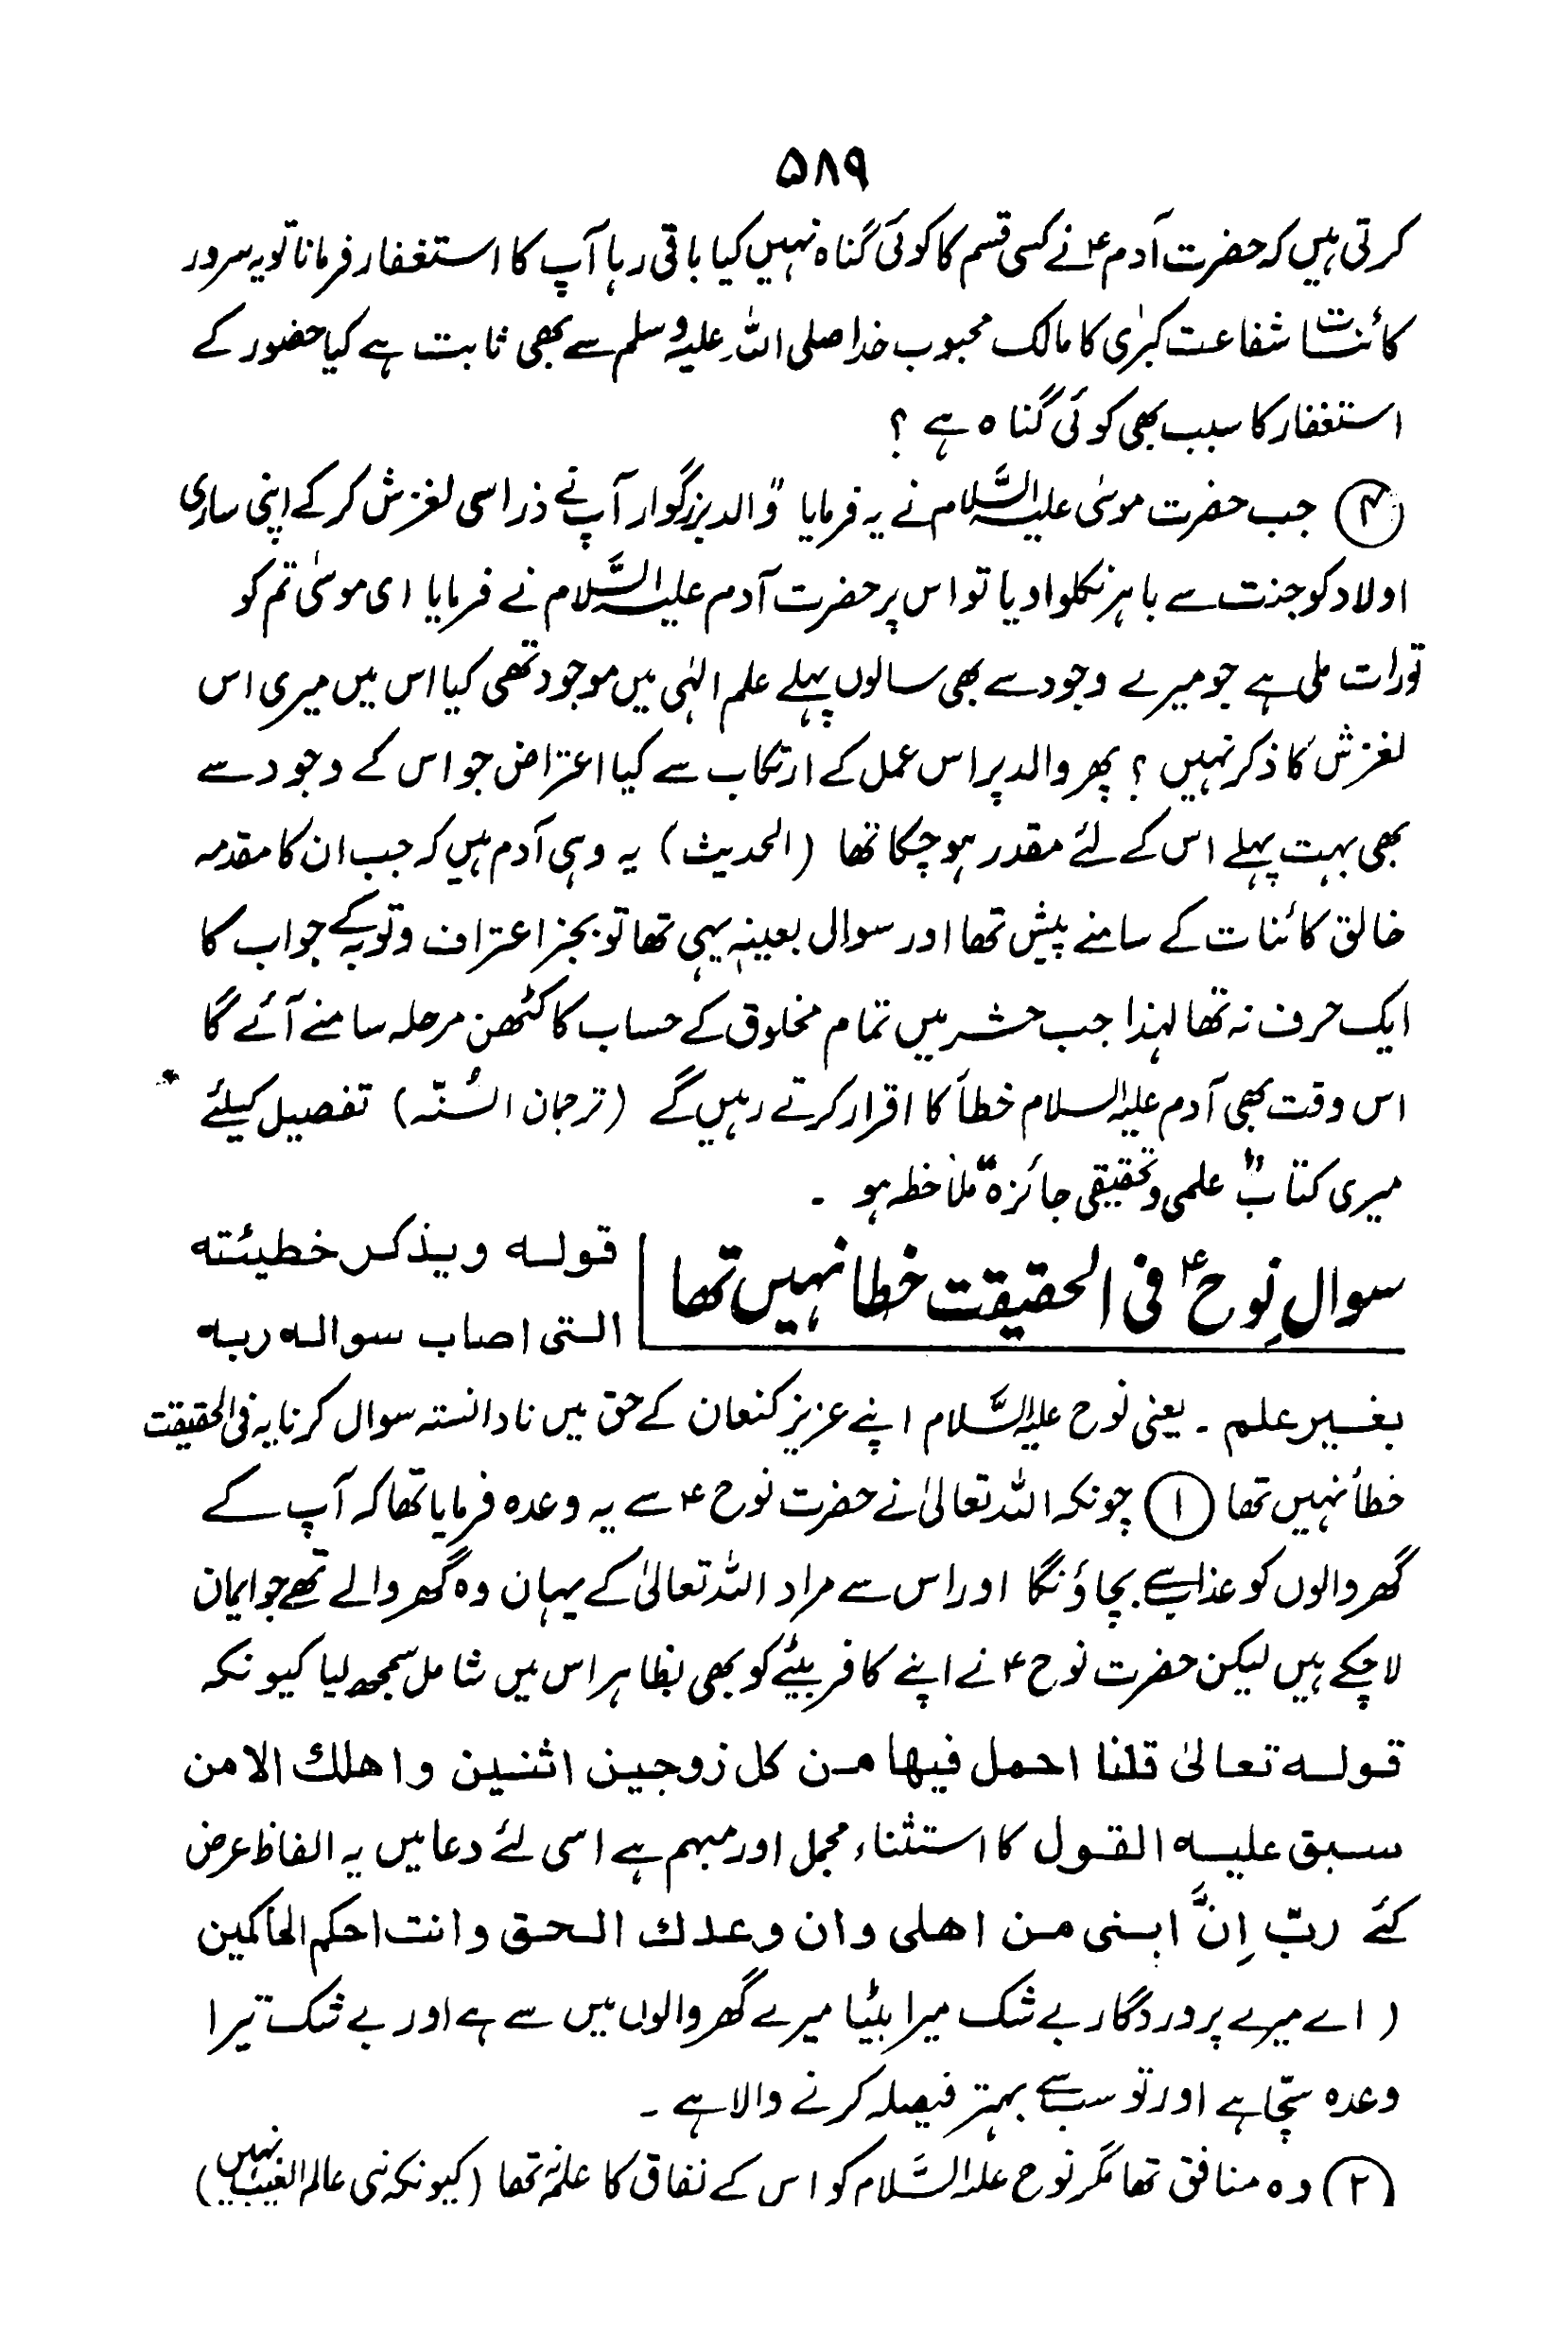 ۵۸۹
کرتی ہیں کہ حضرت آدم ؑ نے کسی قسم کا کوئی گناہ نہیں کیا باقی رہا آپ کا استغفار فرمانا تو یہ سرور
کائنات شفاعت کبرٰی کا مالک محبوب خدا صلی اللہ علیہ وسلم سے بھی ثابت ہے کیا حضور کے
استغفار کا سبب بھی کوئی گناہ ہے ؟
(۴) جب حضرت موسیٰ علیہ السَّلام نے یہ فرمایا "والد بزرگوار آپ نے ذرا سی لغزش کر کے اپنی ساری
اولاد کو جنت سے باہر نکلوا دیا تو اس پر حضرت آدم علیہ السَّلام نے فرمایا ای موسیٰ تم کو
تورات ملی ہے جو میرے وجود سے بھی سالوں پہلے علم الہٰی میں موجود تھی کیا اس میں میری اس
لغزش کا ذکر نہیں ؟ پھر والد پر اس عمل کے ارتکاب سے کیا اعتراض جو اس کے وجود سے
بھی بہت پہلے اس کے لئے مقدر ہو چکا تھا (الحدیث) یہ وہی آدم ہیں کہ جب ان کا مقدمہ
خالق کائنات کے سامنے پیش تھا اور سوال بعینہٖ یہی تھا تو بجز اعتراف وتوبہ کے جواب کا
ایک حرف نہ تھا لہذا جب حشر میں تمام مخلوق کے حساب کا کٹھن مرحلہ سامنے آئے گا
اس وقت بھی آدم علیہ السلام خطأ کا اقرار کرتے رہیں گے (ترجمان السُنّہ) تفصیل کیلئے
میری کتاب "علمی وتحقیقی جائزہ" ملاخظہ ہو ۔
سوالِ نوح ؑ فی الحقیقت خطا نہیں تھا
قولہ ویذکر خطیئتہ
التی اصاب سوالہ ربہ
بغیر علم ۔ یعنی نوح علیہ السَّلام اپنے عزیز کنعان کے حق میں نادانستہ سوال کرنا یہ فی الحقیقت
خطأ نہیں تھا (۱) چونکہ اللہ تعالیٰ نے حضرت نوح ؑ سے یہ وعدہ فرمایا تھا کہ آپ کے
گھر والوں کو عذاب سے بچاؤنگا اور اس سے مراد اللہ تعالیٰ کے یہان وہ گھر والے تھے جو ایمان
لا چکے ہیں لیکن حضرت نوح ؑ نے اپنے کافر بیٹے کو بھی بظاہر اس میں شامل سمجھ لیا کیونکہ
قولہ تعالیٰ قلنا احمل فیھا من کل زوجین اثنین واھلك الا من
سبق علیہ القول کا استثناء مجمل اور مبہم ہے اسی لئے دعا میں یہ الفاظ عرض
کئے ربّ اِنَّ ابنی من اھلی وان وعدك الحق وانت احکم الحاکمین
( اے میرے پروردگار بے شک میرا بیٹا میرے گھر والوں میں سے ہے اور بے شک تیرا
وعدہ سچّا ہے اور تو سب سے بہتر فیصلہ کرنے والا ہے ۔
(۲) وہ منافق تھا مگر نوح علیہ السَّلام کو اس کے نفاق کا علم نہ تھا (کیونکہ نبی عالم الغیب نہیں)